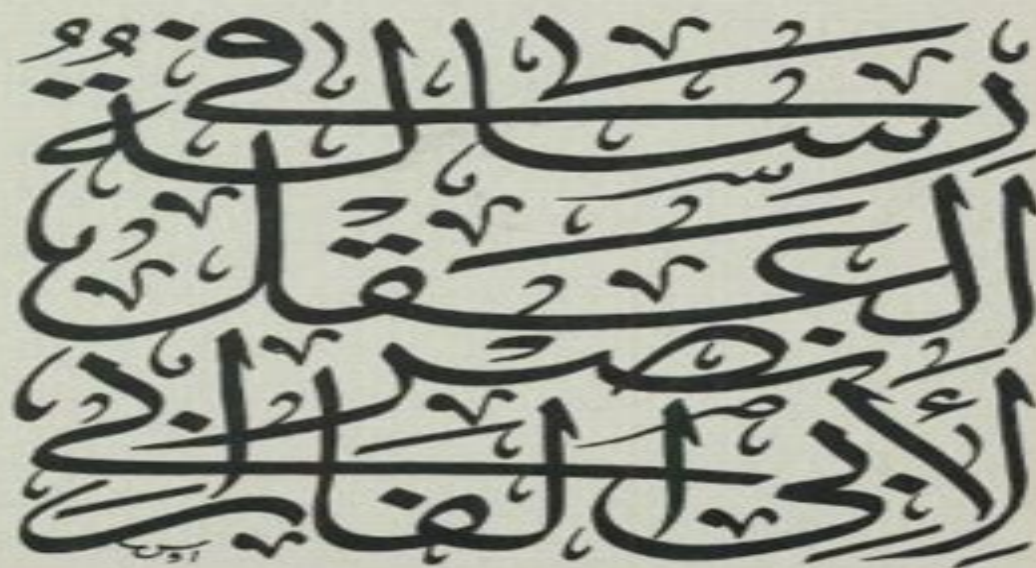 رسالة في
العقل
لأبي نصر
الفارابي